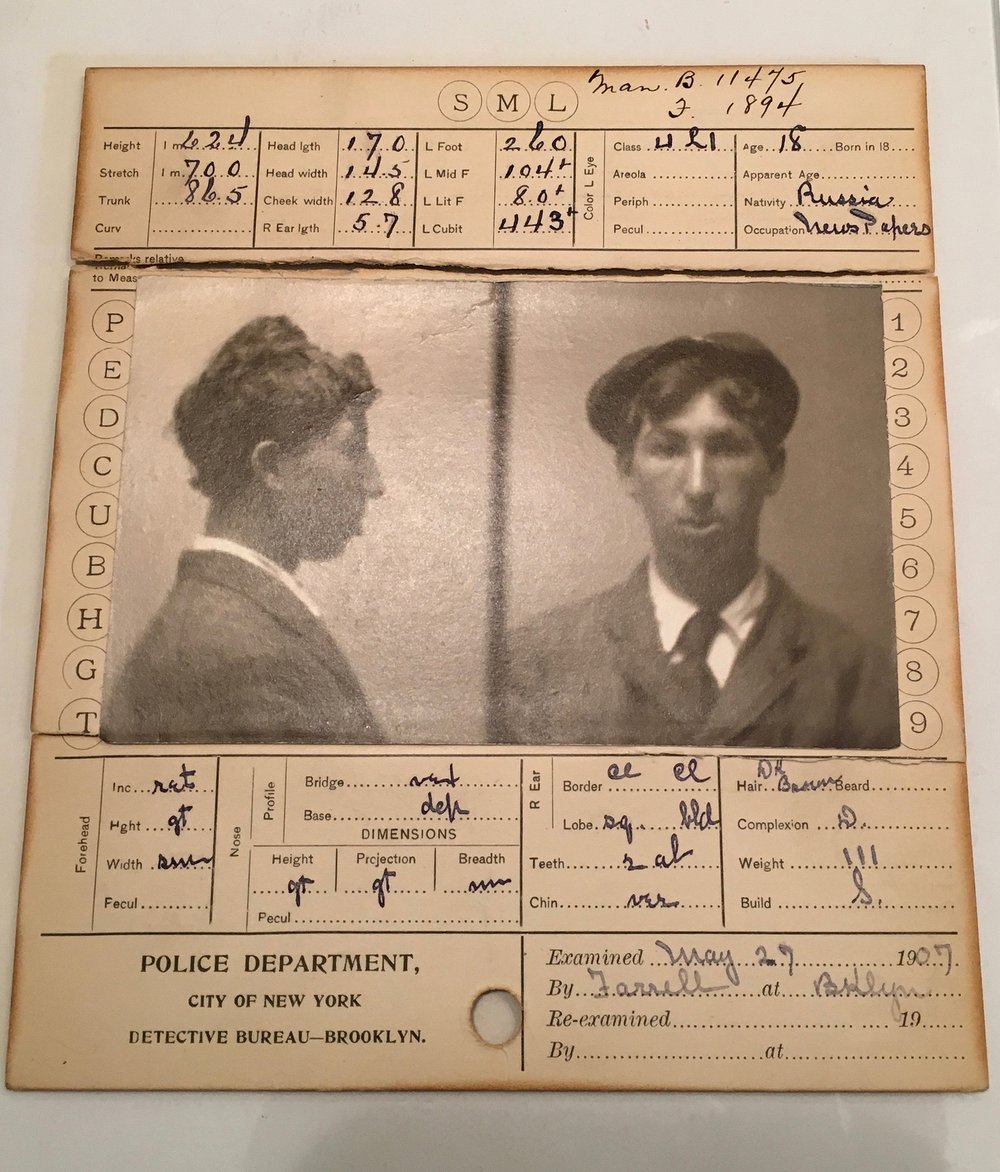 S M L Man. B. 11475
F. 1894
Height 1 m. 62.4 Head lgth 17.0 L Foot 26.0 Class 4 Age 18 Born in 18
Stretch 1 m. 70.0 Head width 14.5 L Mid F 10.4+ Areola Apparent Age
Trunk 86.5 Cheek width 12.8 L Lit F 8.0+ Color L Eye Periph Nativity Russia
Curv R Ear lgth 5.7 L Cubit 44.3+ Pecul Occupation News Papers
Remarks relative
to Meas
P 1
E 2
D 3
C 4
U 5
B 6
H 7
G 8
T 9
Forehead
Inc
Hght gt
Width sm
Pecul
Nose
Profile
Bridge
Base dep
DIMENSIONS
Height Projection Breadth
gt gt m
Pecul
R Ear
Border cl cl
Lobe sq.
Teeth
Chin ver
Hair Dk Brown Beard
Complexion D.
Weight 111
Build S.
POLICE DEPARTMENT,
CITY OF NEW YORK
DETECTIVE BUREAU—BROOKLYN.
Examined May 27 1907.
By Farrell at BKlyn
Re-examined 19
By at